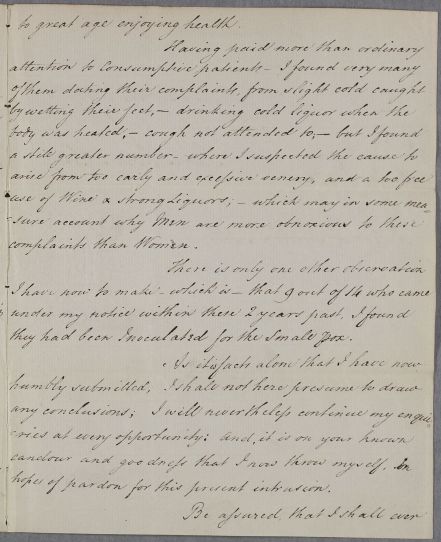 to great age enjoying health.
Having paid more than ordinary
attention to Consumptive patients - I found very many
of them dating their complaints, from slight cold caught
by wetting their feet, - drinking cold liquor when the
body was heated, - cough not attended to, - but I found
a still greater number - where I suspected the cause to
arise from too early and excessive venery, and a too free
use of Wine & strong Liquors; - which may in some mea-
-sure account why Men are more obnoxious to these
complaints than Women.
There is only one other observation
I have now to make - which is - that 9 out of 14 who came
under my notice within these 2 years past, I found
they had been Inoculated for the Small Pox.
As it is facts alone that I have now
humbly submitted, I shall not here presume to draw
any conclusions; I will nevertheless continue my enqui-
eries at every opportunity: and, it is on your known
candour and goodness that I now throw myself, in
hopes of pardon for this present intrusion.
Be assured, that I shall ever